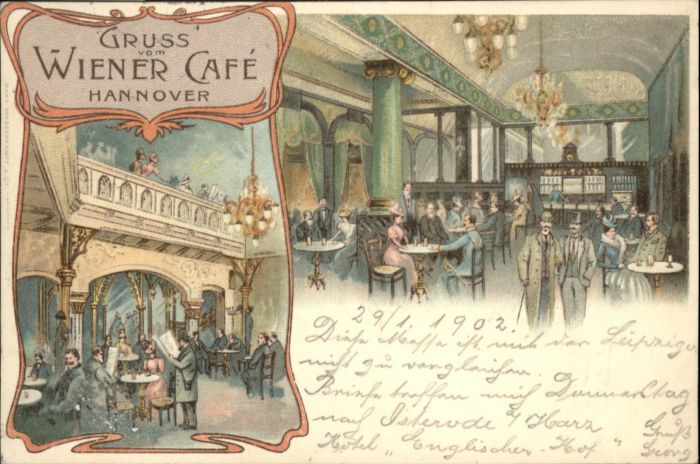 GRUSS
vom
WIENER CAFÉ
HANNOVER
29/1. 1902.
Diese Messe ist mit der Leipziger
nicht zu vergleichen.
Briefe treffen mich Donnerstag
nach Osterode a/ Harz Gruß
Hotel „Englischer-Hof" Georg